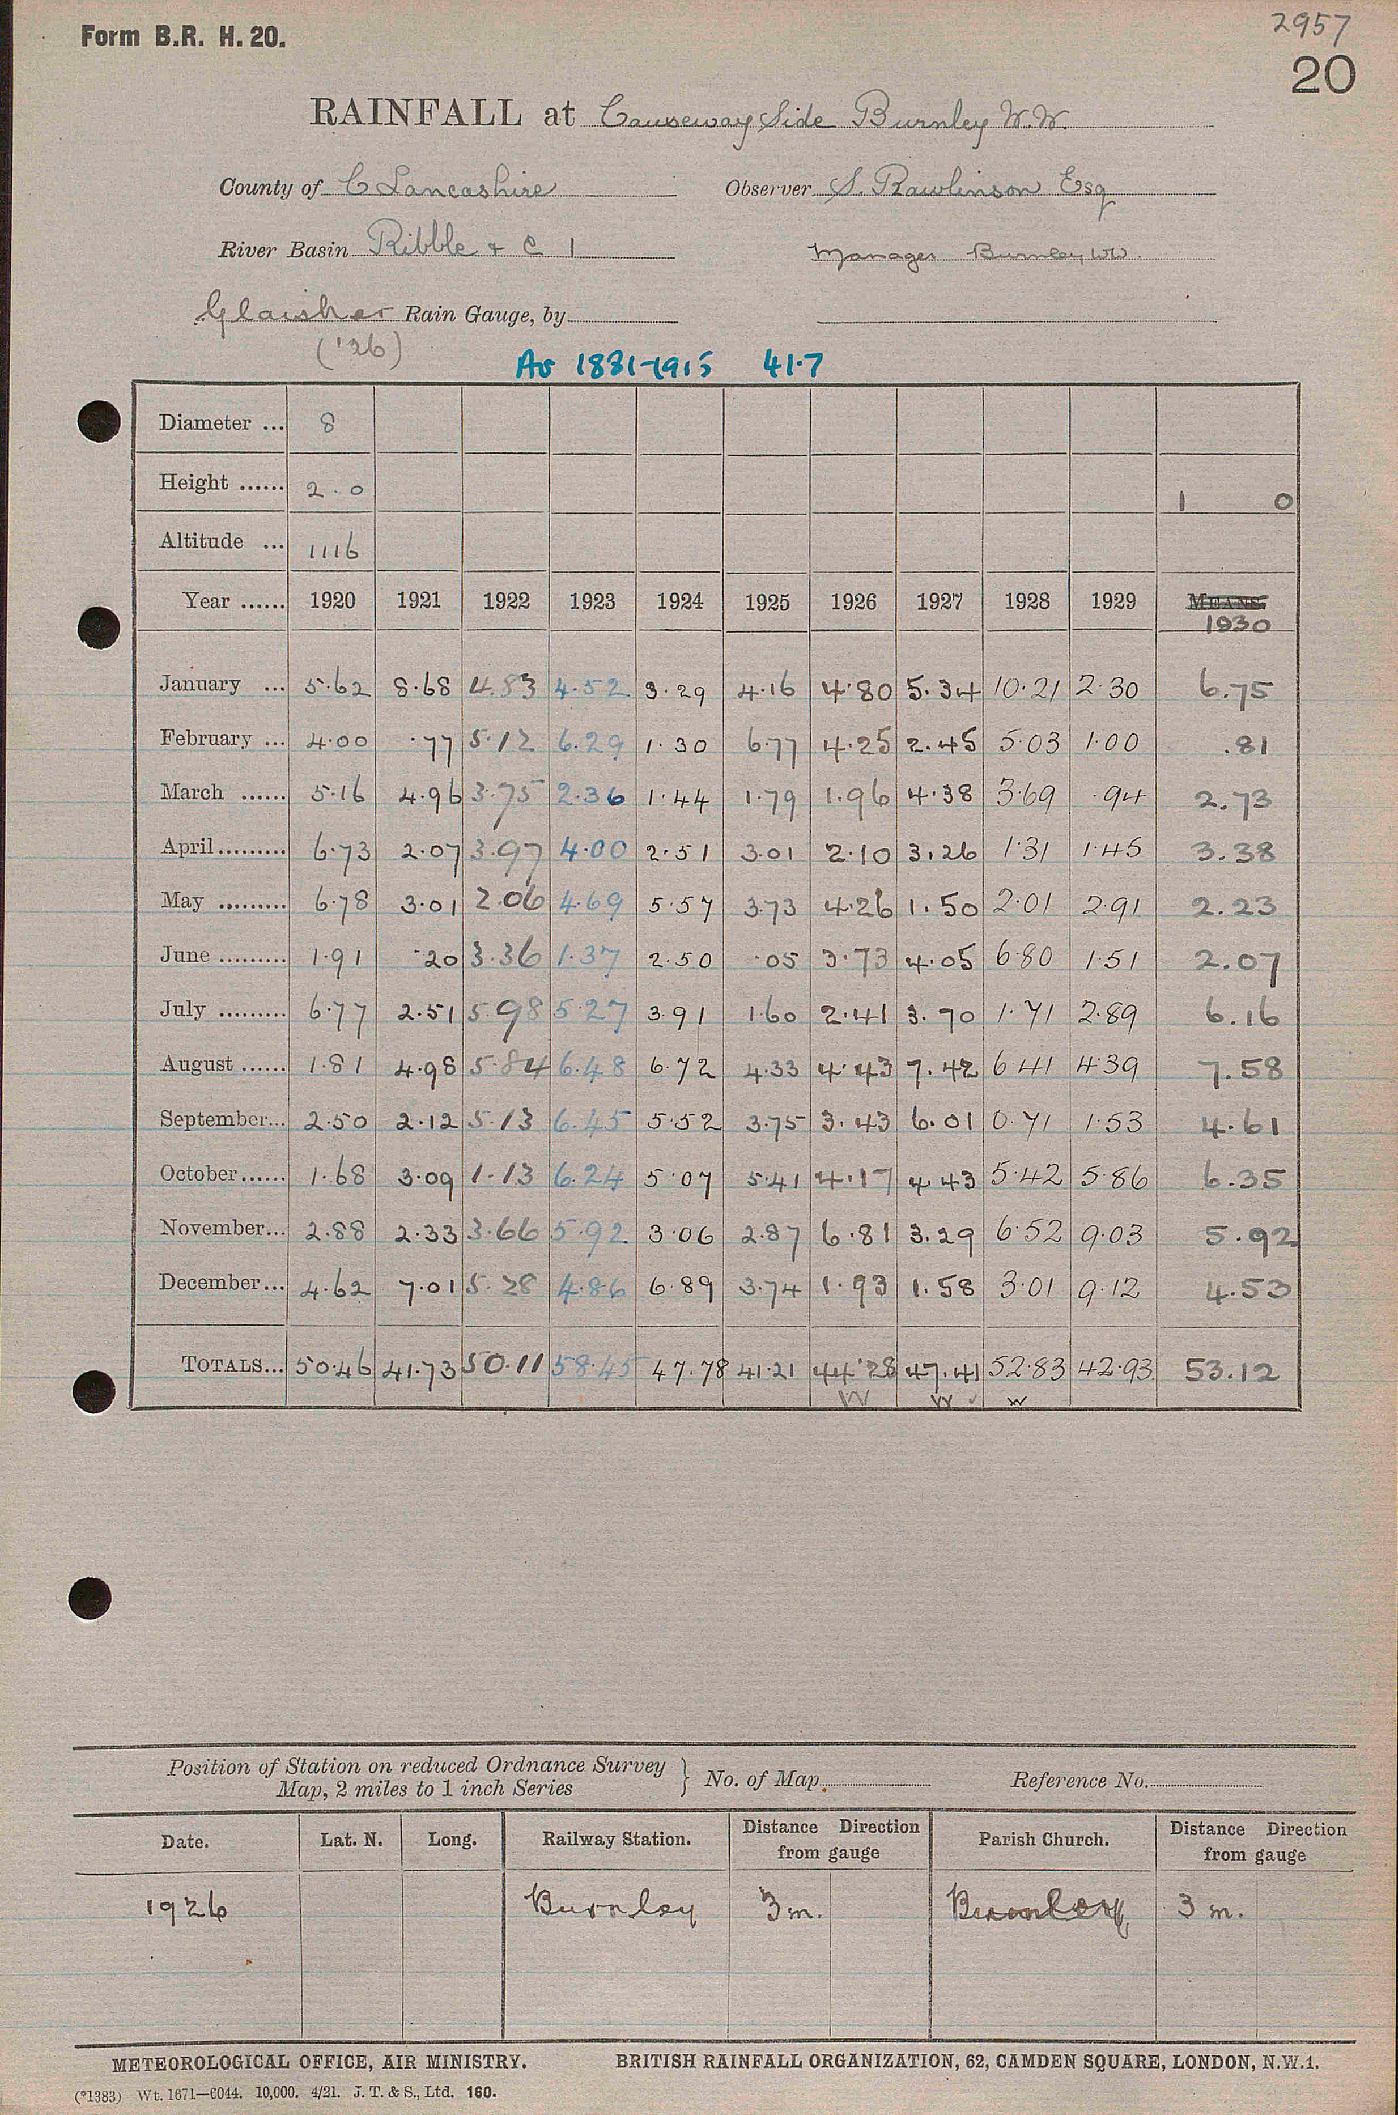 2957
Form B.R. H. 20.
20
RAINFALL at Causeway Side Burnley W.W.
County of C Lancashire Observer S. Rawlinson Esq
River Basin Ribble + C 1 Manager Burnley WW.
Glaisher Rain Gauge, by
('26)
Av 1881-1915 41.7
Diameter ... 8
Height ...... 2.0 1 0
Altitude ... 1116
Year ...... 1920 1921 1922 1923 1924 1925 1926 1927 1928 1929 MEANS.
1930
January ... 5.62 8.68 4.83 4.52 3.29 4.16 4.80 5.34 10.21 2.30 6.75
February ... 4.00 .77 5.12 6.29 1.30 6.77 4.25 2.45 5.03 1.00 .81
March ...... 5.16 4.96 3.75 2.36 1.44 1.79 1.96 4.38 3.69 .94 2.73
April......... 6.73 2.07 3.97 4.00 2.51 3.01 2.10 3.26 1.31 1.45 3.38
May ......... 6.78 3.01 2.06 4.69 5.57 3.73 4.26 1.50 2.01 2.91 2.23
June ......... 1.91 .20 3.36 1.37 2.50 .05 3.73 4.05 6.80 1.51 2.07
July ......... 6.77 2.51 5.98 5.27 3.91 1.60 2.41 3.70 1.71 2.89 6.16
August ...... 1.81 4.98 5.84 6.48 6.72 4.33 4.43 7.42 6.41 4.39 7.58
September... 2.50 2.12 5.13 6.45 5.52 3.75 3.43 6.01 0.71 1.53 4.61
October...... 1.68 3.09 1.13 6.24 5.07 5.41 4.17 4.43 5.42 5.86 6.35
November... 2.88 2.33 3.66 5.92 3.06 2.87 6.81 3.29 6.52 9.03 5.92
December... 4.62 7.01 5.28 4.86 6.89 3.74 1.93 1.58 3.01 9.12 4.53
TOTALS... 50.46 41.73 50.11 58.45 47.78 41.21 44.28 47.41 52.83 42.93 53.12
W W ✓ W
Position of Station on reduced Ordnance Survey
Map, 2 miles to 1 inch Series } No. of Map Reference No.
Date. Lat. N. Long. Railway Station. Distance Direction from gauge Parish Church. Distance Direction from gauge
1926 Burnley 3 m. Burnley 3 m.
METEOROLOGICAL OFFICE, AIR MINISTRY. BRITISH RAINFALL ORGANIZATION, 62, CAMDEN SQUARE, LONDON, N.W.1.
(*1383) Wt. 1671—6044. 10,000. 4/21. J. T. & S., Ltd. 160.